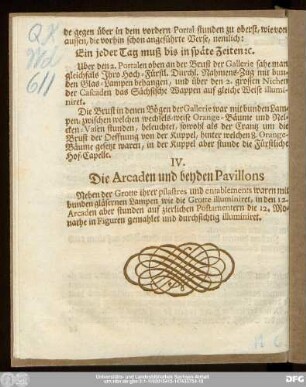 Qu
Wd
611
de gegen über in dem vordern Portal stunden zu oberst, wie von
aussen, die vorhin schon angeführte Verse, nemlich:
Ein jeder Tag muß bis in späte Zeiten ꝛc.
Uber den 2. Portalen oben an der Brust der Gallerie sahe man
gleichfals Ihro Hoch-Fürstl. Durchl. Nahmens-Zug mit bunden
Glas-Lampen behangen, und über den 2. grossen Nichen
der Cascaden das Sächsische Wappen auf gleiche Weise illuminiret.
Die Brust in denen Bögen der Gallerie war mit bunden Lampen,
zwischen welchen wechsels-weise Orange-Bäume und Nelcken-
Vasen stunden, beleuchtet, sowohl als der Crantz um die
Brust der Oeffnung von der Kuppel, hinter welchen 8. Orange-
Bäume gesetzt waren, in der Kuppel aber stunde die Fürstliche
Hof-Capelle.
IV.
Die Arcaden und beyden Pavillons
Neben der Grotte ihrer pilastres und entablements waren mit
bunden gläsernen Lampen wie die Grotte illuminiret, in den 12.
Arcaden aber stunden auf zierlichen Postamentern die 12. Monathe
in Figuren gemahlet und durchsichtig illuminiret.
Universitäts- und Landesbibliothek Sachsen-Anhalt